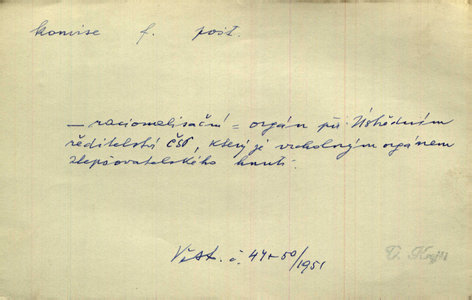 komise f. pošt.
— racionalisační = orgán při Ústředním
ředitelství ČSP, který je vrcholným orgánem
zlepšovatelského hnutí.
Věst. č. 49+50/1951